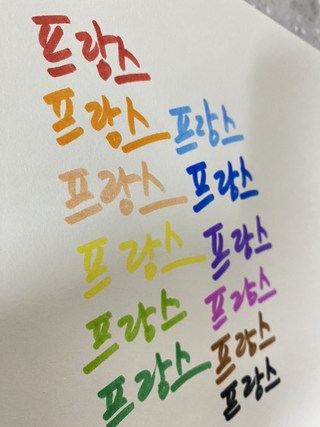 프랑스
프랑스
프랑스
프랑스
프랑스
프랑스
프랑스
프랑스
프랑스
프랑스
프랑스
프랑스